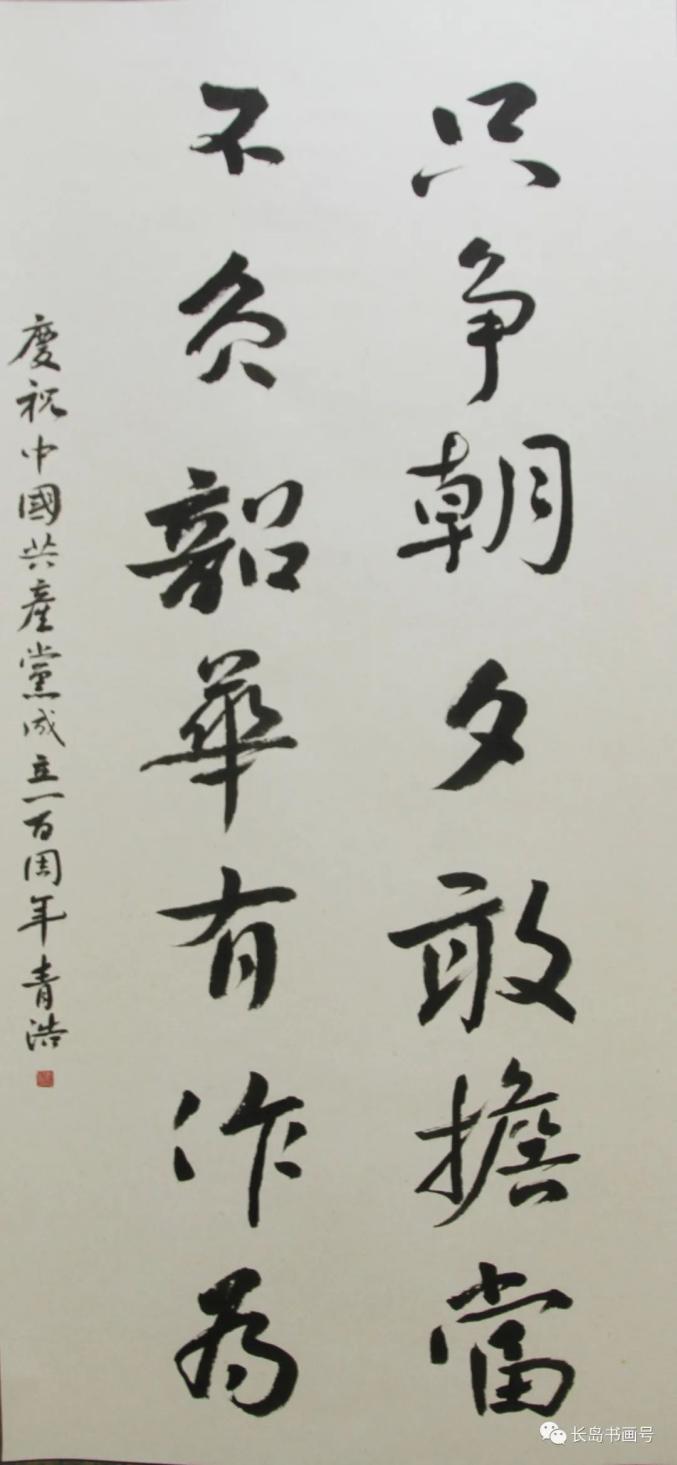 只争朝夕敢擔當
不負韶華有作為
慶祝中國共産黨成立一百周年青浩
长岛书画号